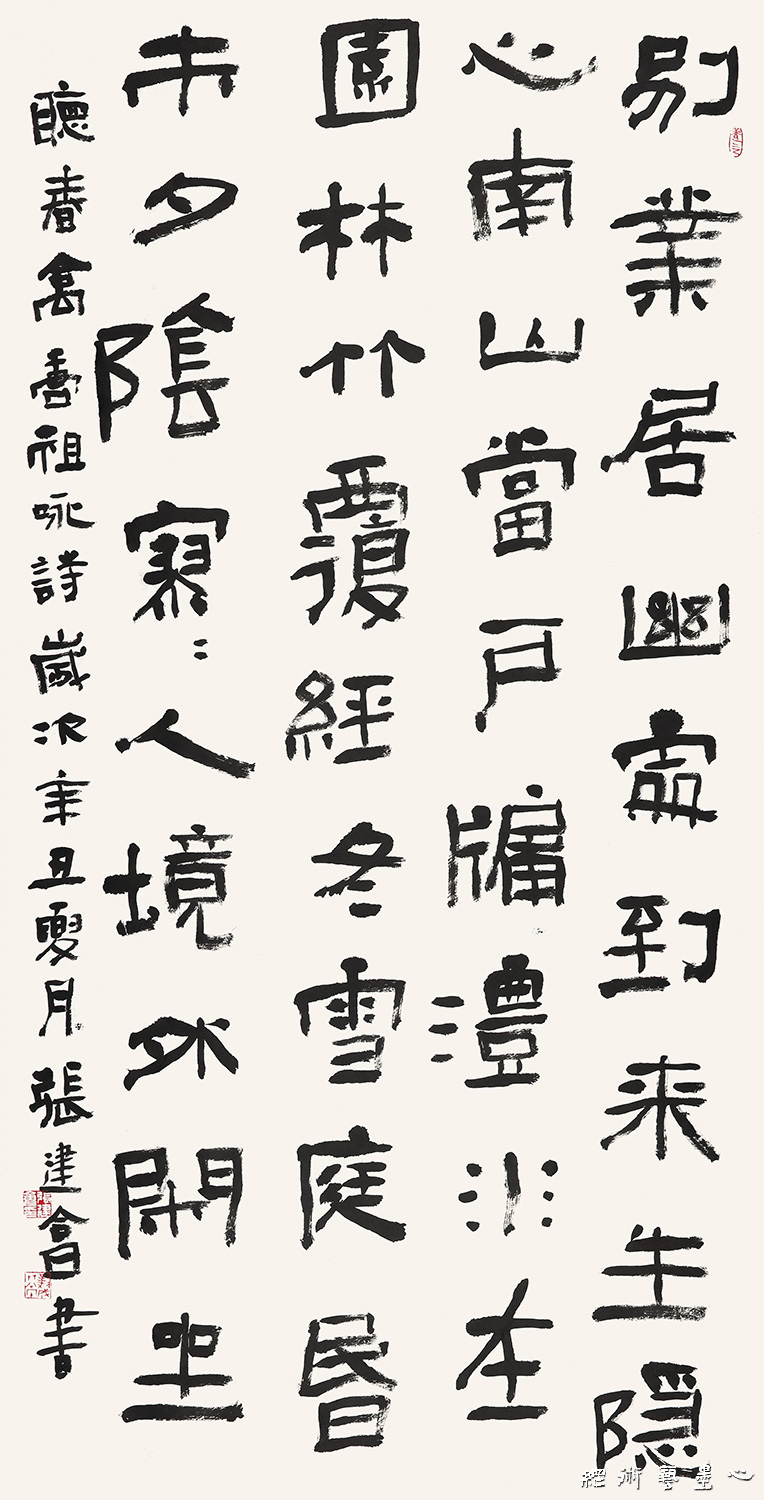 別業居幽處到来生隱
心南山當戶牖灃水在
園林竹覆經冬雪庭昏
未夕陰寥〻人境外閑坐
聽春禽唐祖咏詩歲次辛丑夏月張建會書
心墨藝術經